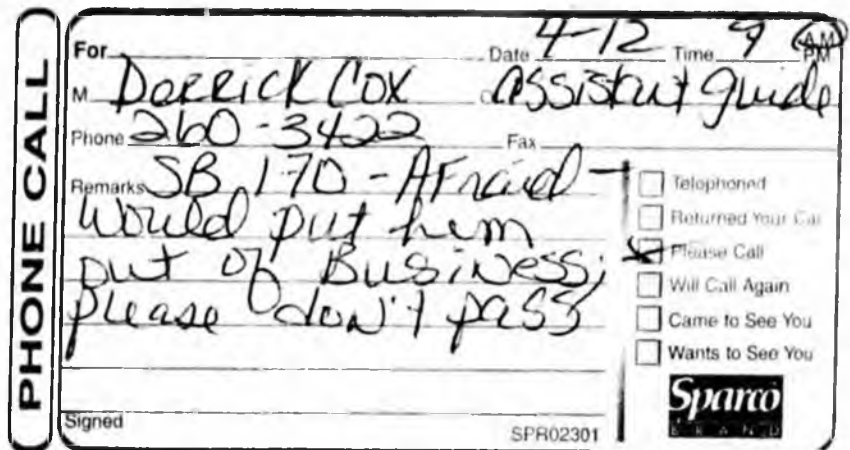 PHONE CALL
For Date 4-12 Time 9 AM PM
M Derrick Cox assistant guide
Phone 260-3422 Fax
Remarks SB 170 - AFraid -
would put him
out of Business;
please don't pass
Telephoned
Returned Your Call
Please Call
Will Call Again
Came to See You
Wants to See You
Sparco
BRAND
Signed SPR02301